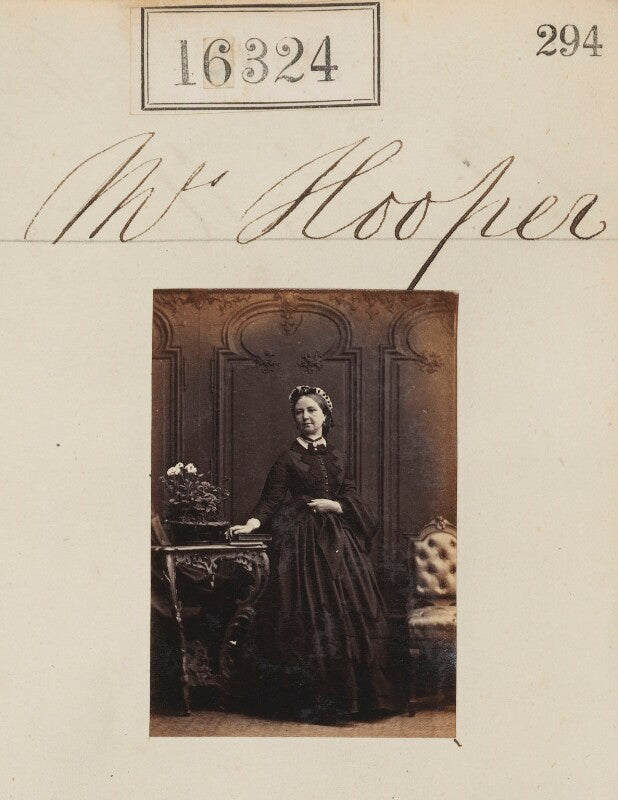 16324
294
Mrs Hooper